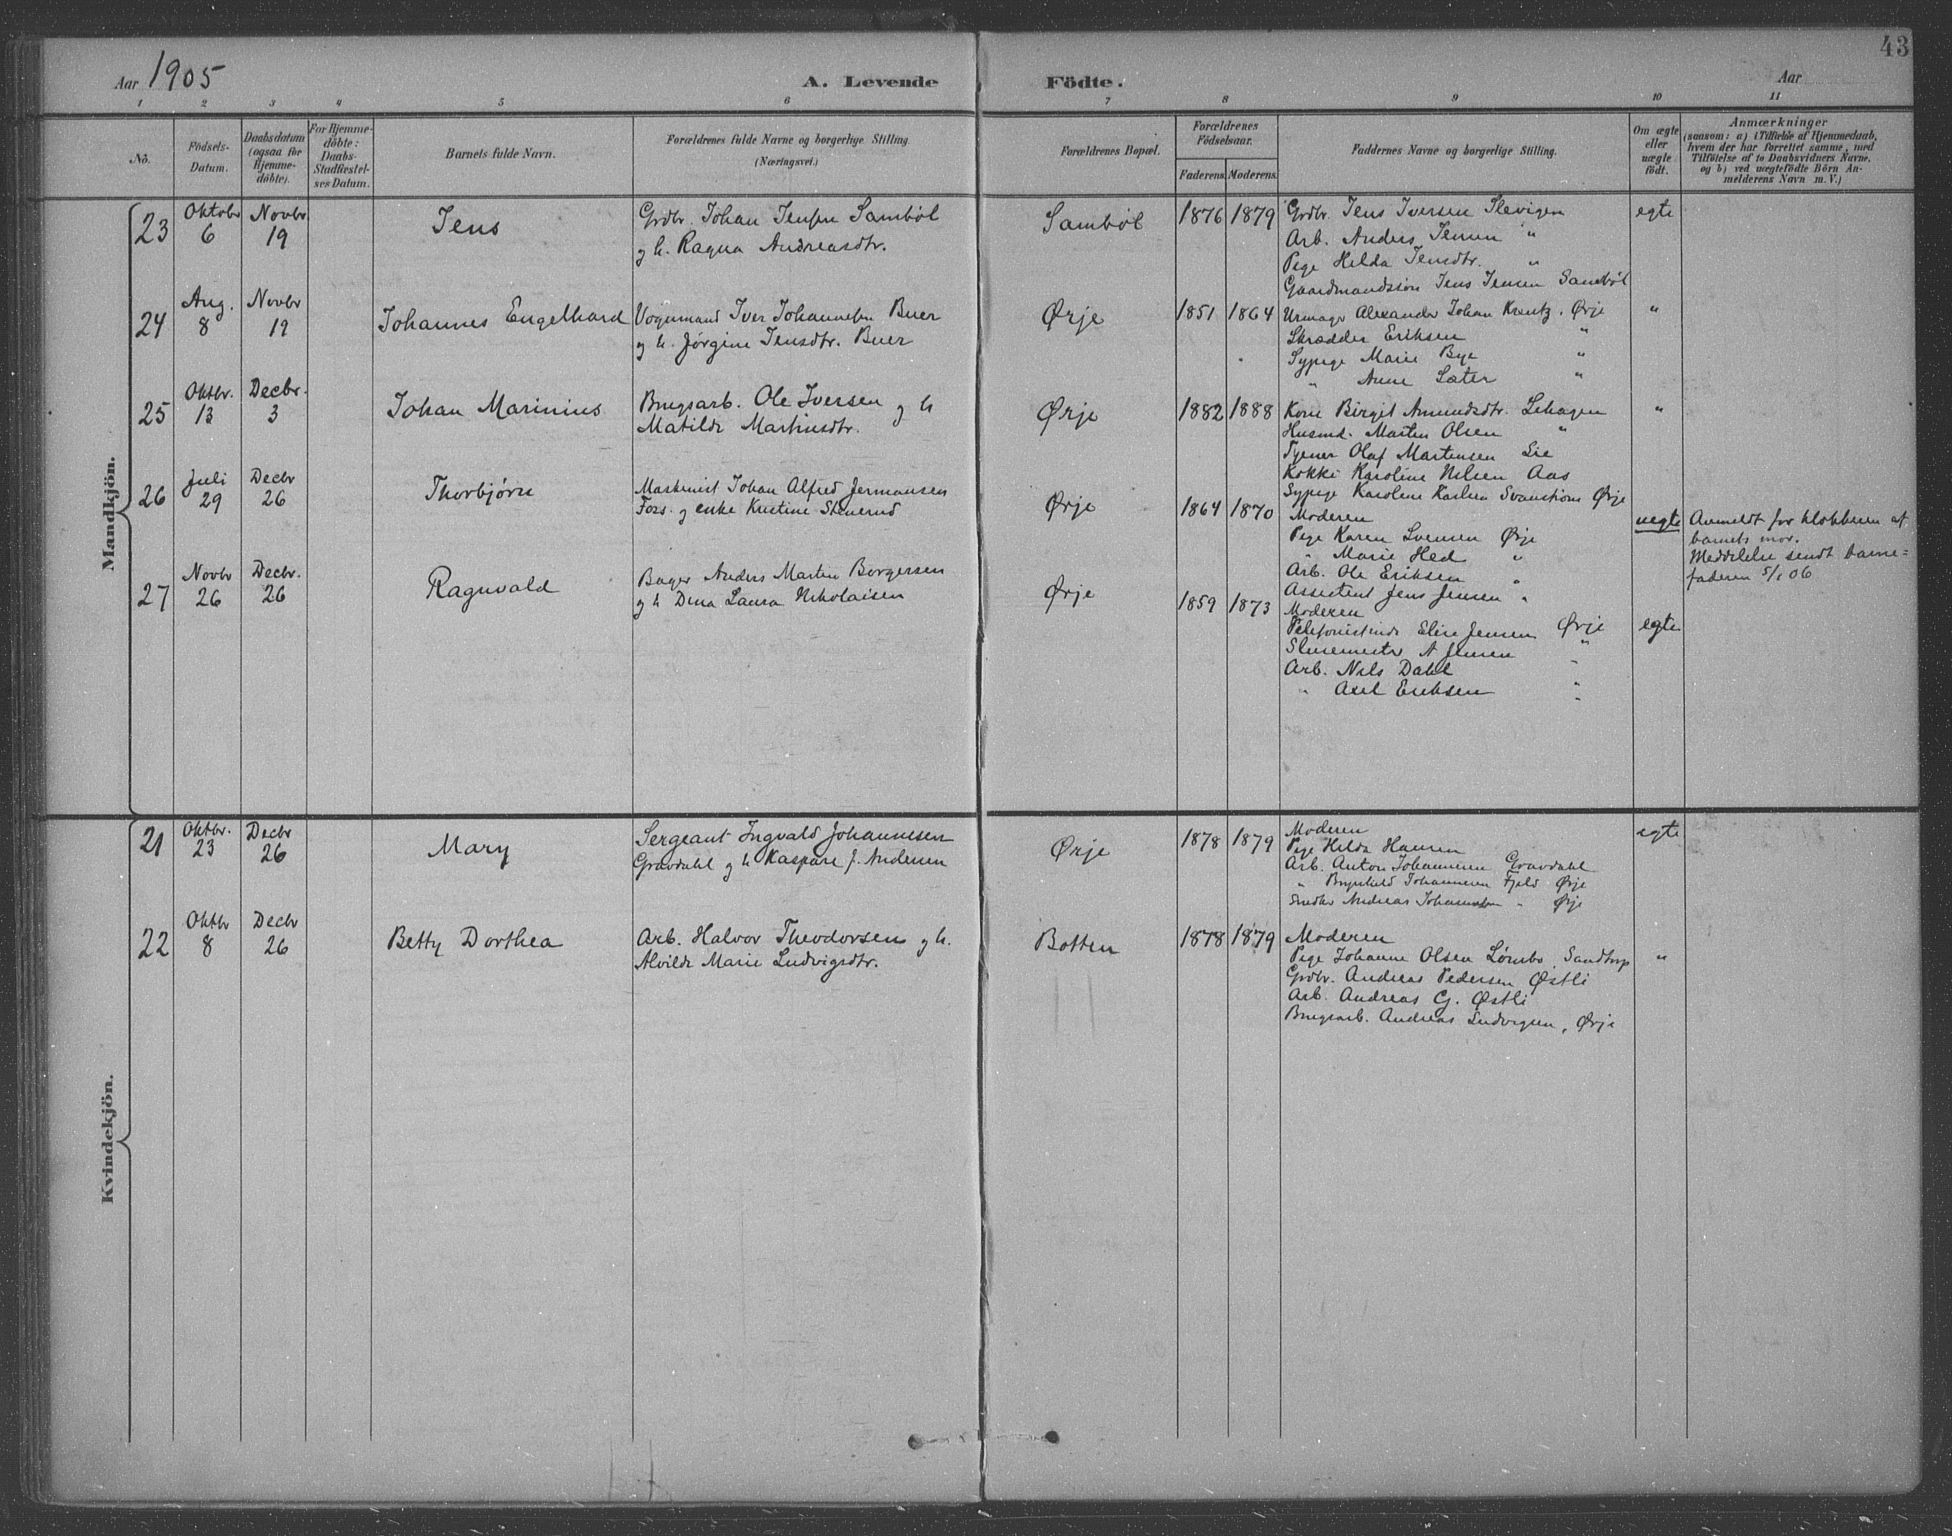 43
Aar 1905
A. Levende Födte.
Aar
1 2 3 4 5 6 7 8 9 10 11
Nò.
Födsels-
Datum.
Daabsdatum
(ogsaa for
Hjemme-
döbte).
For Hjemme-
döbte:
Daabs-
Stadfæstel-
ses Datum.
Barnets fulde Navn.
Forældrenes fulde Navne og borgerlige Stilling
(Næringsvei.)
Forældrenes Bopæl.
Forældrenes
Födselsaar.
Faderens. Moderens.
Faddernes Navne og borgerlige Stilling.
Om ægte
eller
uægte
födt.
Anmærkninger
(saasom: a) i Tilfælde af Hjemmedaab,
hvem der har forrettet samme, med
Tilföielse af to Daabsvidners Navne,
og b) ved uægtefödte Börn An-
melderens Navn m. V.)
Mandkjön.
23
Oktobr
6
Novbr
19
Jens
Grdbr. Johan Jensen Sambøl
og h. Ragna Andreasdtr.
Sambøl
1876 1879
Grdbr. Jens Iversen Slevigen
Arb. Anders Jensen "
Pige Hilda Jensdtr. "
Gaardmandssøn Jens Jensen Sambøl
egte
24
Aug.
8
Novbr
19
Johannes Engelhard
Vognmand Iver Johannesen Buer
og h. Jørgine Jensdtr. Buer
Ørje
1851 1864
Urmager Alexander Johan Krentz. Ørje
Skrædder Eriksen "
Sypige Marie Bye "
" Anne Sæter "
"
25
Oktbr.
13
Decbr.
3
Johan Marinius
Brugsarb. Ole Iversen og h
Matilde Martinsdtr.
Ørje
1882 1888
Kone Birgit Amundsdtr. Lihagen
Husmd. Martin Olsen "
Tjener Olaf Martensen Lie
Kokke Karoline Nilsen Aas
Sypige Karoline Karlsen Ørje
"
26
Juli
29
Decbr
26
Thorbjørn
Maskinist Johan Alfred Jermansen
Fors. og enke Kristine
Ørje
1864 1870
Moderen
Pige Karen Svensen Ørje
" Marie Hed "
Arb. Ole Eriksen "
Assistent Jens Jensen "
uegte
Anmeldt for klokkeren af
barnets mor.
Meddelelse sendt barne=
faderen 5/1 06
27
Novbr
26
Decbr.
26
Ragnvald
Bager Anders Martin Borgersen
og h Dina Laura Nikolaisen
Ørje
1859 1873
Moderen
Telefonistinde Elise Jensen Ørje
Slusemester A Jensen "
Arb. Nils Dahl "
" Axel Eriksen "
egte
Kvindekjön.
21
Oktbr.
23
Decbr
26
Mary
Sergeant Ingvald Johannesen
Gravdahl og h Kaspara J. Andersen
Ørje
1878 1879
Moderen
Pige Hilda Hansen
Arb. Anton Johannesen Gravdahl
" Brynhild Johannesen Fjeld Ørje
Snedker Andreas Johannesen " Ørje
egte
22
Oktbr
8
Decbr
26
Betty Dorthea
Arb. Halvor Theodorsen og h.
Alvilde Marie Ludvigsdtr.
Botten
1878 1879
Moderen
Pige Johanne Olsen Lømbo Sandtorp
Grdbr. Andreas Pedersen Østli
Arb. Andreas G. Østli
Brugsarb. Andreas Ludvigsen, Ørje
"